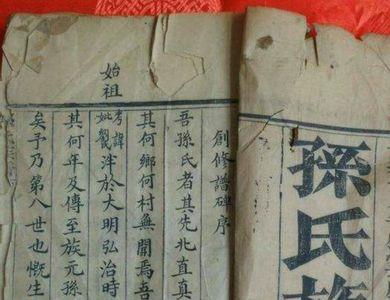 孫氏族
創修譜碑序
吾孫氏者其先北直真
其何鄉何村無聞焉吾
始祖考諱妣泮於大明弘治時
其何年及傳至族元孫
矣予乃第八世也慨生